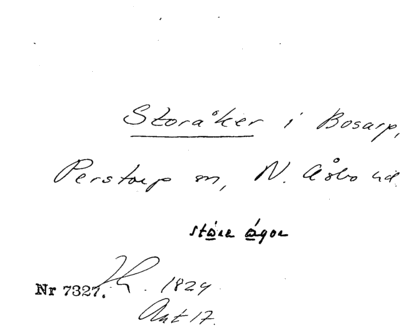 Storåker i Bosarp,
Perstorp sn, N. Åsbo hd.
Nr 7327. 1824
Akt 17.